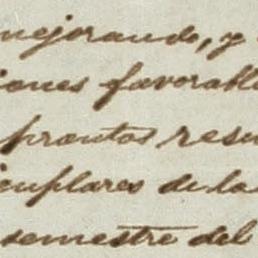 mejorando, y
iones favorabl
prontos resu
jemplares de la
semestre del